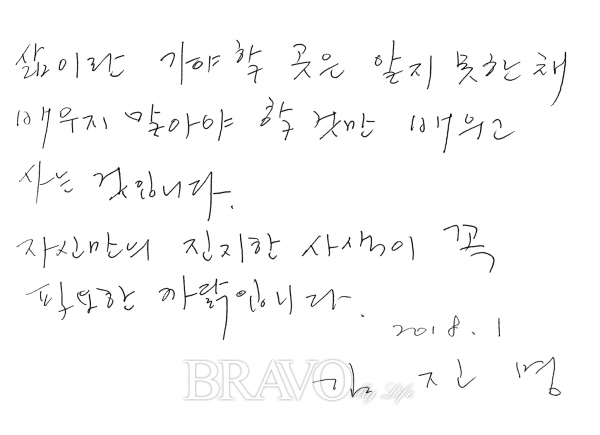 삶이란 가야 할 곳은 알지 못한 채
배우지 말아야 할 것만 배우고
사는 것입니다.
자신만의 진지한 사색이 꼭
필요한 까닭입니다.
2018. 1
BRAVO My Life
김진명